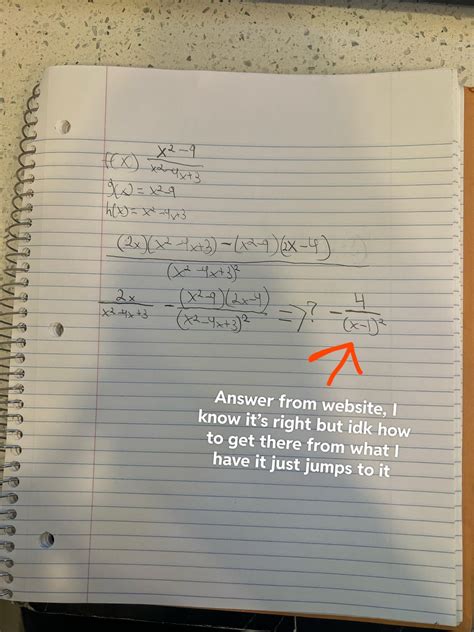 f(x) x²-9 / x²-4x+3
g(x) = x²-9
h(x) = x²-4x+3
(2x)(x²-4x+3)-(x²-9)(2x-4) / (x²-4x+3)²
2x / x²-4x+3 - (x²-9)(2x-4) / (x²-4x+3)² => ? - 4 / (x-1)²
Answer from website, I
know it's right but idk how
to get there from what I
have it just jumps to it